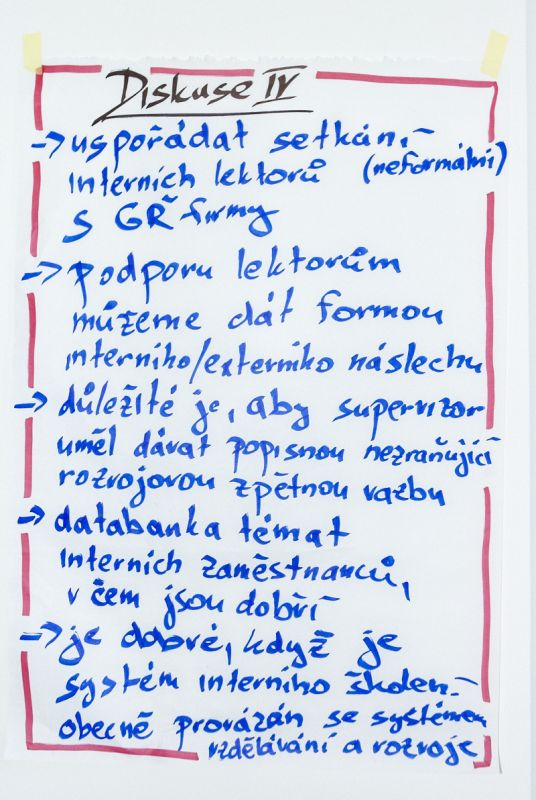 Diskuse IV
→ uspořádat setkání
interních lektorů (neformální)
s GŘ firmy
→ podporu lektorům
můžeme dát formou
interního/externího náslechu
→ důležité je, aby supervizor
uměl dávat popisnou nezraňující
rozvojovou zpětnou vazbu
→ databanka témat
interních zaměstnanců,
v čem jsou dobří
→ je dobré, když je
systém interního školení
obecně provázán se systémem
vzdělávání a rozvoje